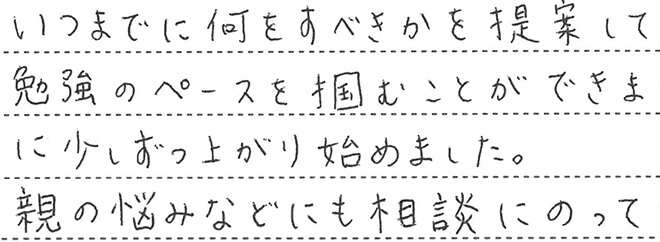 いつまでに何をすべきかを提案して
勉強のペースを掴むことができま
に少しずつ上がり始めました。
親の悩みなどにも相談にのって